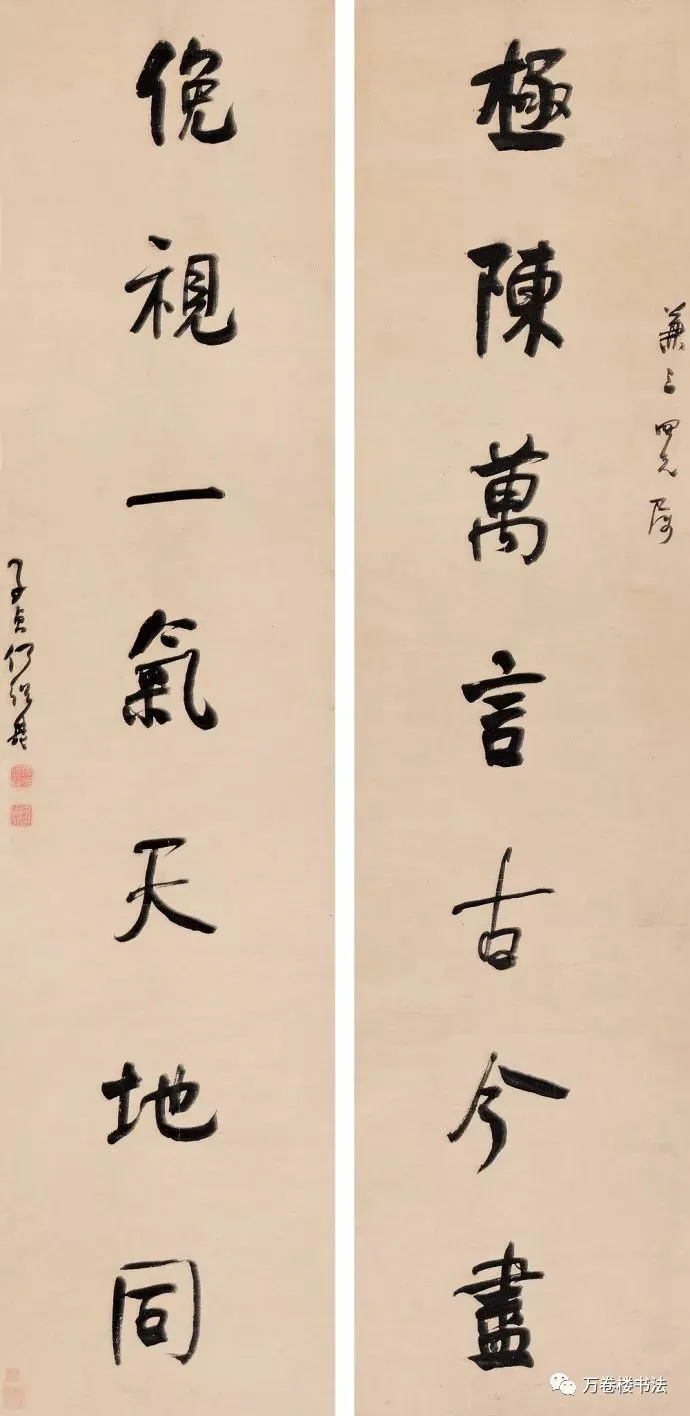 兼三四兄属
極陳萬言古今盡
俛視一氣天地同
子貞何紹基
万卷楼书法